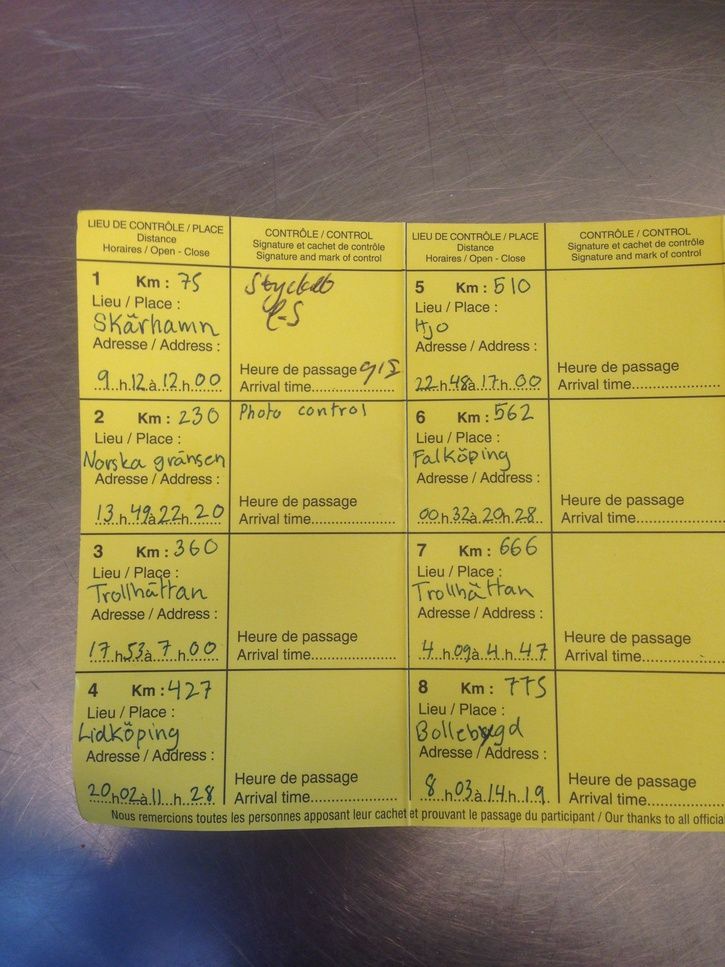 LIEU DE CONTRÔLE / PLACE
Distance
Horaires / Open - Close
CONTRÔLE / CONTROL
Signature et cachet de contrôle
Signature and mark of control
1 Km : 75
Lieu / Place :
Skärhamn
Adresse / Address :
9 h 12 à 12 h 00
Heure de passage 915
Arrival time
2 Km : 230
Lieu / Place :
Norska gränsen
Adresse / Address :
13 h 49 à 22 h 20
Photo control
Heure de passage
Arrival time
3 Km : 360
Lieu / Place :
Trollhättan
Adresse / Address :
17 h 53 à 7 h 00
Heure de passage
Arrival time
4 Km : 427
Lieu / Place :
Lidköping
Adresse / Address :
20 h 02 à 11 h 28
Heure de passage
Arrival time
LIEU DE CONTRÔLE / PLACE
Distance
Horaires / Open - Close
CONTRÔLE / CONTROL
Signature et cachet de contrôle
Signature and mark of control
5 Km : 510
Lieu / Place :
Hjo
Adresse / Address :
22 h 48 à 17 h 00
Heure de passage
Arrival time
6 Km : 562
Lieu / Place :
Falköping
Adresse / Address :
00 h 32 à 20 h 28
Heure de passage
Arrival time
7 Km : 666
Lieu / Place :
Trollhättan
Adresse / Address :
4 h 09 à 4 h 47
Heure de passage
Arrival time
8 Km : 775
Lieu / Place :
Bollebygd
Adresse / Address :
8 h 03 à 14 h 19
Heure de passage
Arrival time
Nous remercions toutes les personnes apposant leur cachet et prouvant le passage du participant / Our thanks to all official